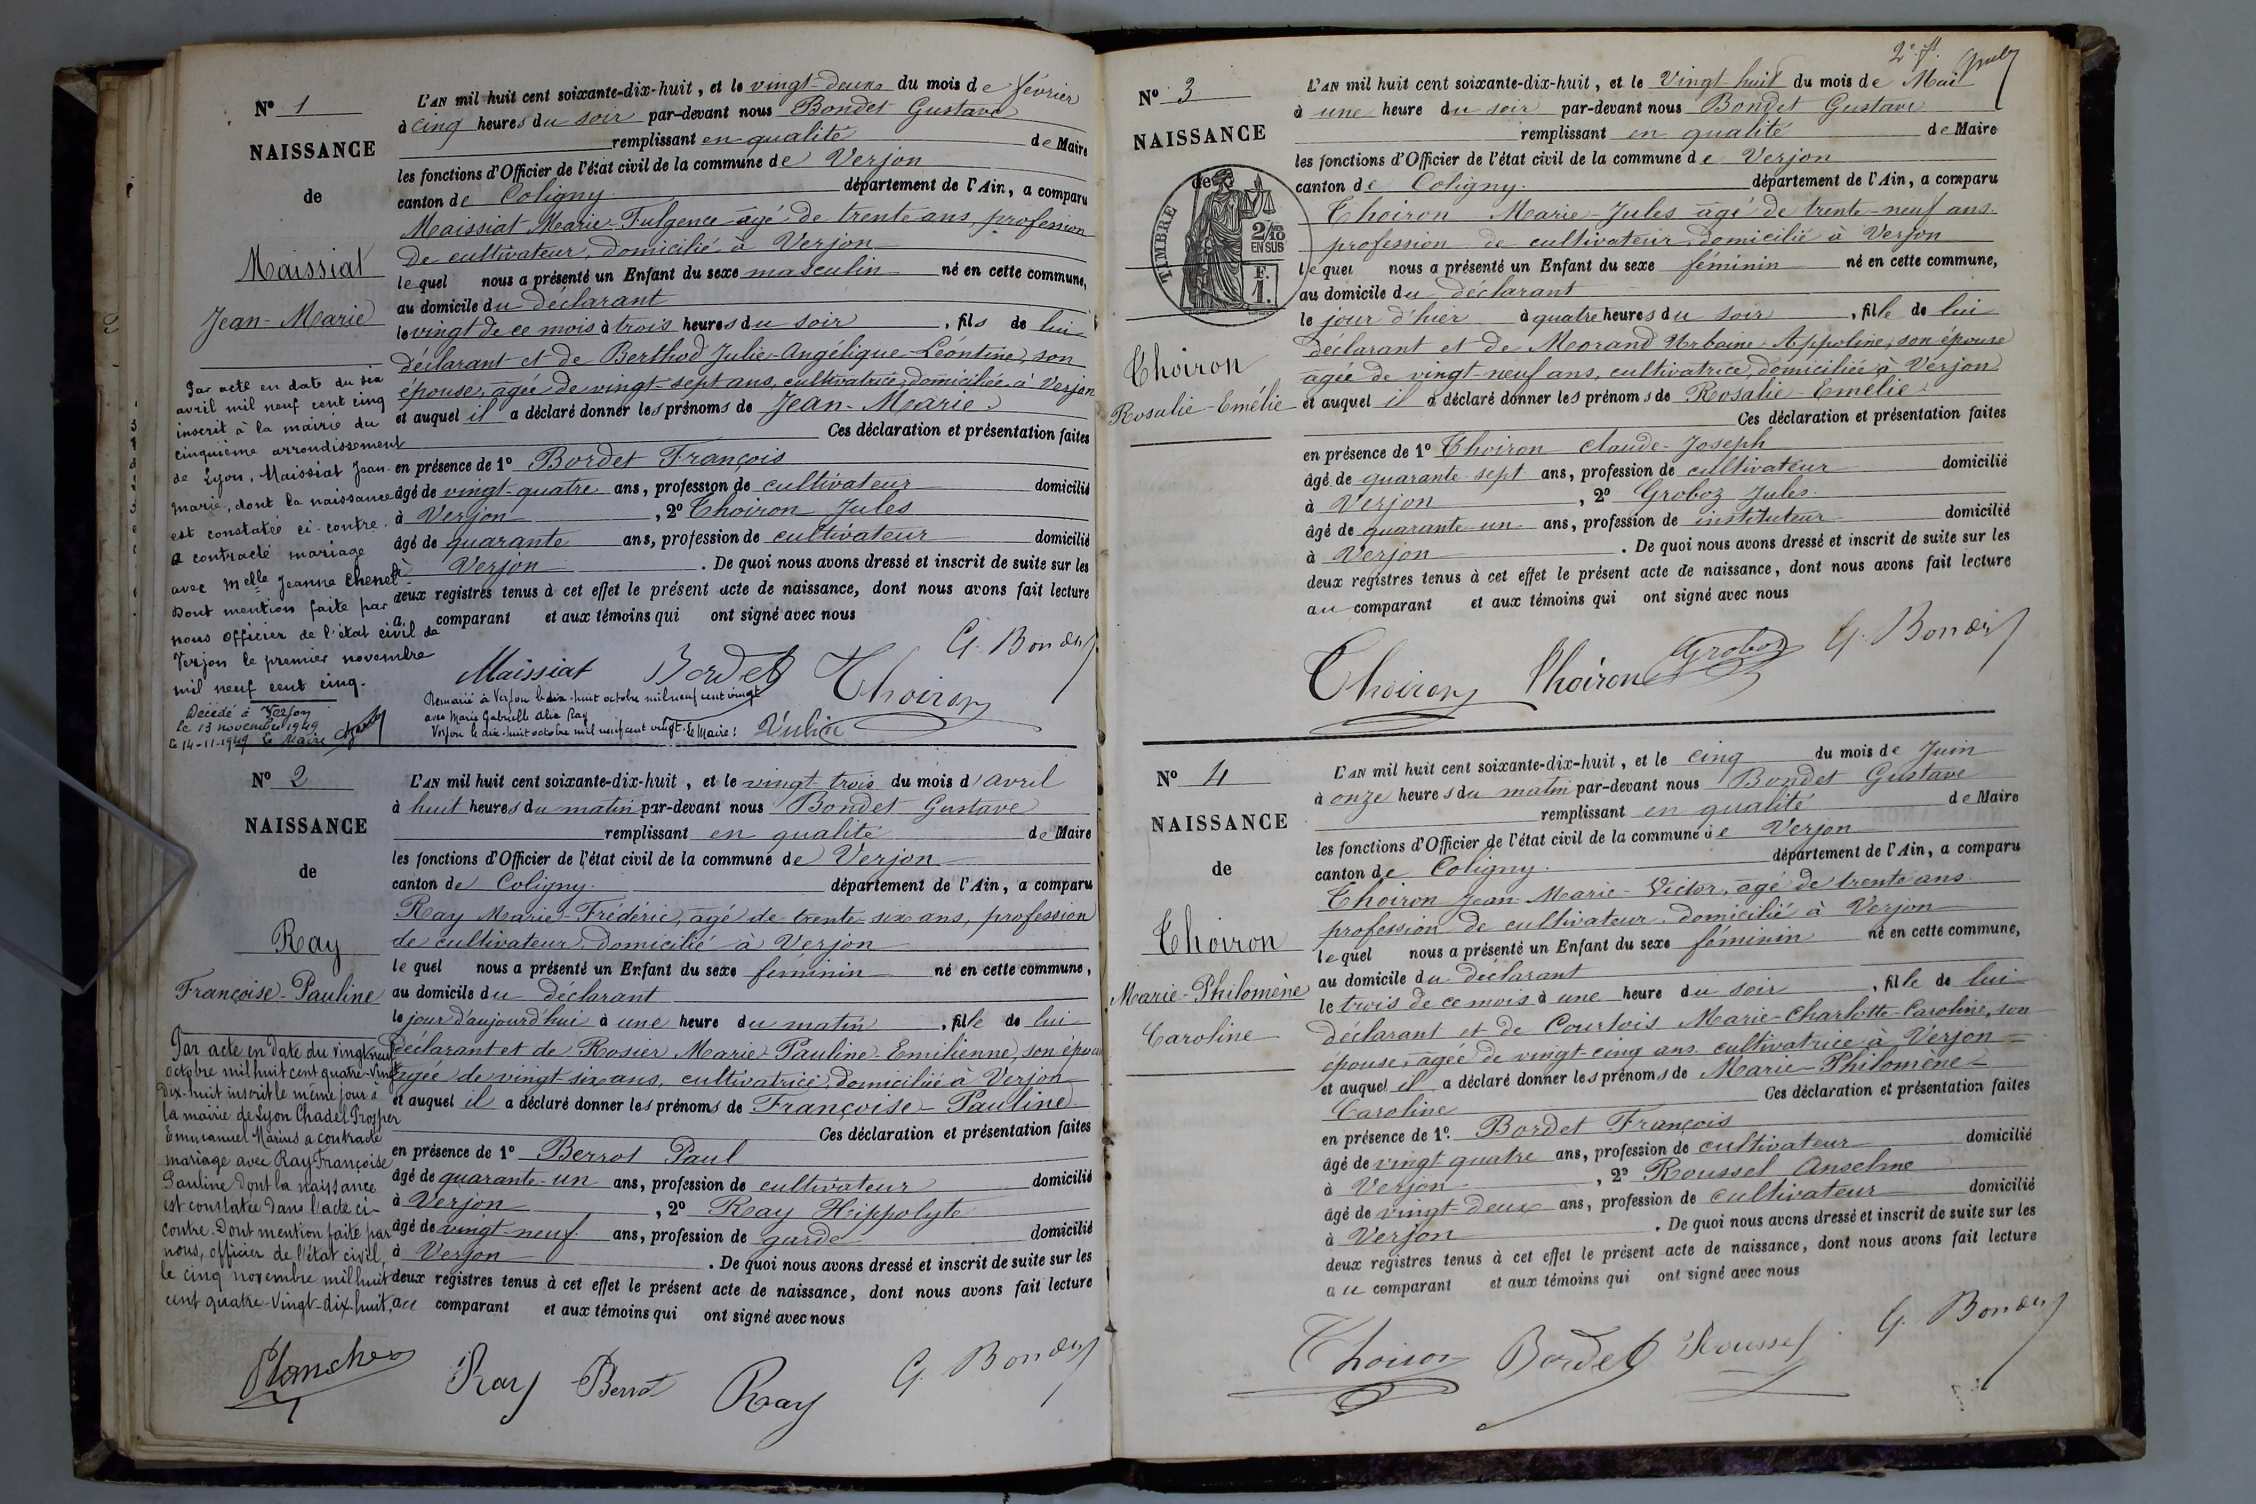 N° 1
NAISSANCE
de
Maissiat
Jean-Marie
L'AN mil huit cent soixante-dix-huit, et le vingt-deux du mois de février
à cinq heures du soir par-devant nous Bondet Gustave
remplissant en qualité de Maire
les fonctions d'Officier de l'état civil de la commune de Verjon
canton de Coligny département de l'Ain, a comparu
Maissiat Marie-Fulgence âgé de trente ans profession
de cultivateur, domicilié à Verjon
lequel nous a présenté un Enfant du sexe masculin né en cette commune,
au domicile du déclarant
le vingt de ce mois à trois heures du soir, fils de lui
déclarant et de Berthod Julie-Angélique-Léontine, son
épouse, agée de vingt-sept ans, cultivatrice, domiciliée à Verjon
et auquel il a déclaré donner les prénoms de Jean-Marie.
Ces déclaration et présentation faites
en présence de 1° Bordet François
âgé de vingt-quatre ans, profession de cultivateur domicilié
à Verjon, 2° Thoiron Jules
âgé de quarante ans, profession de cultivateur domicilié
à Verjon. De quoi nous avons dressé et inscrit de suite sur les
deux registres tenus à cet effet le présent acte de naissance, dont nous avons fait lecture
au comparant et aux témoins qui ont signé avec nous
Maissiat Bordet Thoiron G. Bondet
Par acte en date du six
avril mil neuf cent cinq
inscrit à la mairie du
cinquième arrondissement
de Lyon, Maissiat Jean-
Marie, dont la naissance
est constatée ci-contre.
a contracté mariage
avec Melle Jeanne Chenel.
Dont mention faite par
nous officier de l'état civil de
Verjon le premier novembre
mil neuf cent cinq.
Décédé à Verjon
le 13 novembre 1949
Le 14-11-1949 Le Maire
Remarié à Verjon le dix-huit octobre mil neuf cent vingt
avec Marie Gabrielle Alix Ray
Verjon le dix-huit octobre mil neuf cent vingt. Le Maire:
N° 2
NAISSANCE
de
Ray
Françoise-Pauline
L'AN mil huit cent soixante-dix-huit, et le vingt-trois du mois d'avril
à huit heures du matin par-devant nous Bondet Gustave
remplissant en qualité de Maire
les fonctions d'Officier de l'état civil de la commune de Verjon
canton de Coligny département de l'Ain, a comparu
Ray Marie-Frédéric, agé de trente-six ans, profession
de cultivateur, domicilié à Verjon
lequel nous a présenté un Enfant du sexe féminin né en cette commune,
au domicile du déclarant
le jour d'aujourd'hui à une heure du matin, fille de lui
déclarant et de Rosier Marie-Pauline-Emilienne, son épouse
agée de vingt six ans, cultivatrice, domiciliée à Verjon
et auquel il a déclaré donner les prénoms de Françoise-Pauline
Ces déclaration et présentation faites
en présence de 1° Berrot Paul
âgé de quarante-un ans, profession de cultivateur domicilié
à Verjon, 2° Ray Hippolyte
âgé de vingt-neuf ans, profession de garde domicilié
à Verjon. De quoi nous avons dressé et inscrit de suite sur les
deux registres tenus à cet effet le présent acte de naissance, dont nous avons fait lecture
au comparant et aux témoins qui ont signé avec nous
Par acte en date du vingt neuf
octobre mil huit cent quatre-vingt
dix-huit inscrit le même jour à
la mairie de Lyon Chadel Prosper
Emmanuel Marius a contracté
mariage avec Ray Françoise
Pauline dont la naissance
est constatée dans l'acte ci-
contre. Dont mention faite par
nous, officier de l'état civil,
le cinq novembre mil huit
cent quatre-vingt-dix-huit.
Ray Berrot Ray G. Bondet
2e f.
N° 3
NAISSANCE
de
TIMBRE
2/10
EN SUS
F.
1.
Thoiron
Rosalie-Emélie
L'AN mil huit cent soixante-dix-huit, et le Vingt-huit du mois de Mai
à une heure du soir par-devant nous Bondet Gustave
remplissant en qualité de Maire
les fonctions d'Officier de l'état civil de la commune de Verjon
canton de Coligny. département de l'Ain, a comparu
Thoiron Marie-Jules âgé de trente-neuf ans.
profession de cultivateur, domicilié à Verjon
lequel nous a présenté un Enfant du sexe féminin né en cette commune,
au domicile du déclarant
le jour d'hier à quatre heures du soir, fille de lui
déclarant et de Morand Urbaine-Appoline, son épouse
agée de vingt-neuf ans, cultivatrice, domiciliée à Verjon
et auquel il a déclaré donner les prénoms de Rosalie-Emélie
Ces déclaration et présentation faites
en présence de 1° Thoiron claude-Joseph
âgé de quarante-sept ans, profession de cultivateur domicilié
à Verjon, 2° Groboz Jules
âgé de quarante-un ans, profession de instituteur domicilié
à Verjon. De quoi nous avons dressé et inscrit de suite sur les
deux registres tenus à cet effet le présent acte de naissance, dont nous avons fait lecture
au comparant et aux témoins qui ont signé avec nous
Thoiron Thoiron Groboz G. Bondet
N° 4
NAISSANCE
de
Thoiron
Marie-Philomène
Caroline
L'AN mil huit cent soixante-dix-huit, et le cinq du mois de Juin
à onze heures du matin par-devant nous Bondet Gustave
remplissant en qualité de Maire
les fonctions d'Officier de l'état civil de la commune de Verjon
canton de Coligny. département de l'Ain, a comparu
Thoiron Jean-Marie-Victor, âgé de trente ans
profession de cultivateur domicilié à Verjon
lequel nous a présenté un Enfant du sexe féminin né en cette commune,
au domicile du déclarant
le trois de ce mois à une heure du soir, fille de lui
déclarant et de Courtois Marie-Charlotte-Caroline, son
épouse, agée de vingt-cinq ans cultivatrice à Verjon
et auquel il a déclaré donner les prénoms de Marie-Philomène-
Caroline Ces déclaration et présentation faites
en présence de 1° Bordet François
âgé de vingt quatre ans, profession de cultivateur domicilié
à Verjon, 2° Roussel Anselme
âgé de vingt-deux ans, profession de cultivateur domicilié
à Verjon. De quoi nous avons dressé et inscrit de suite sur les
deux registres tenus à cet effet le présent acte de naissance, dont nous avons fait lecture
au comparant et aux témoins qui ont signé avec nous
Thoiron Bordet Roussel G. Bondet